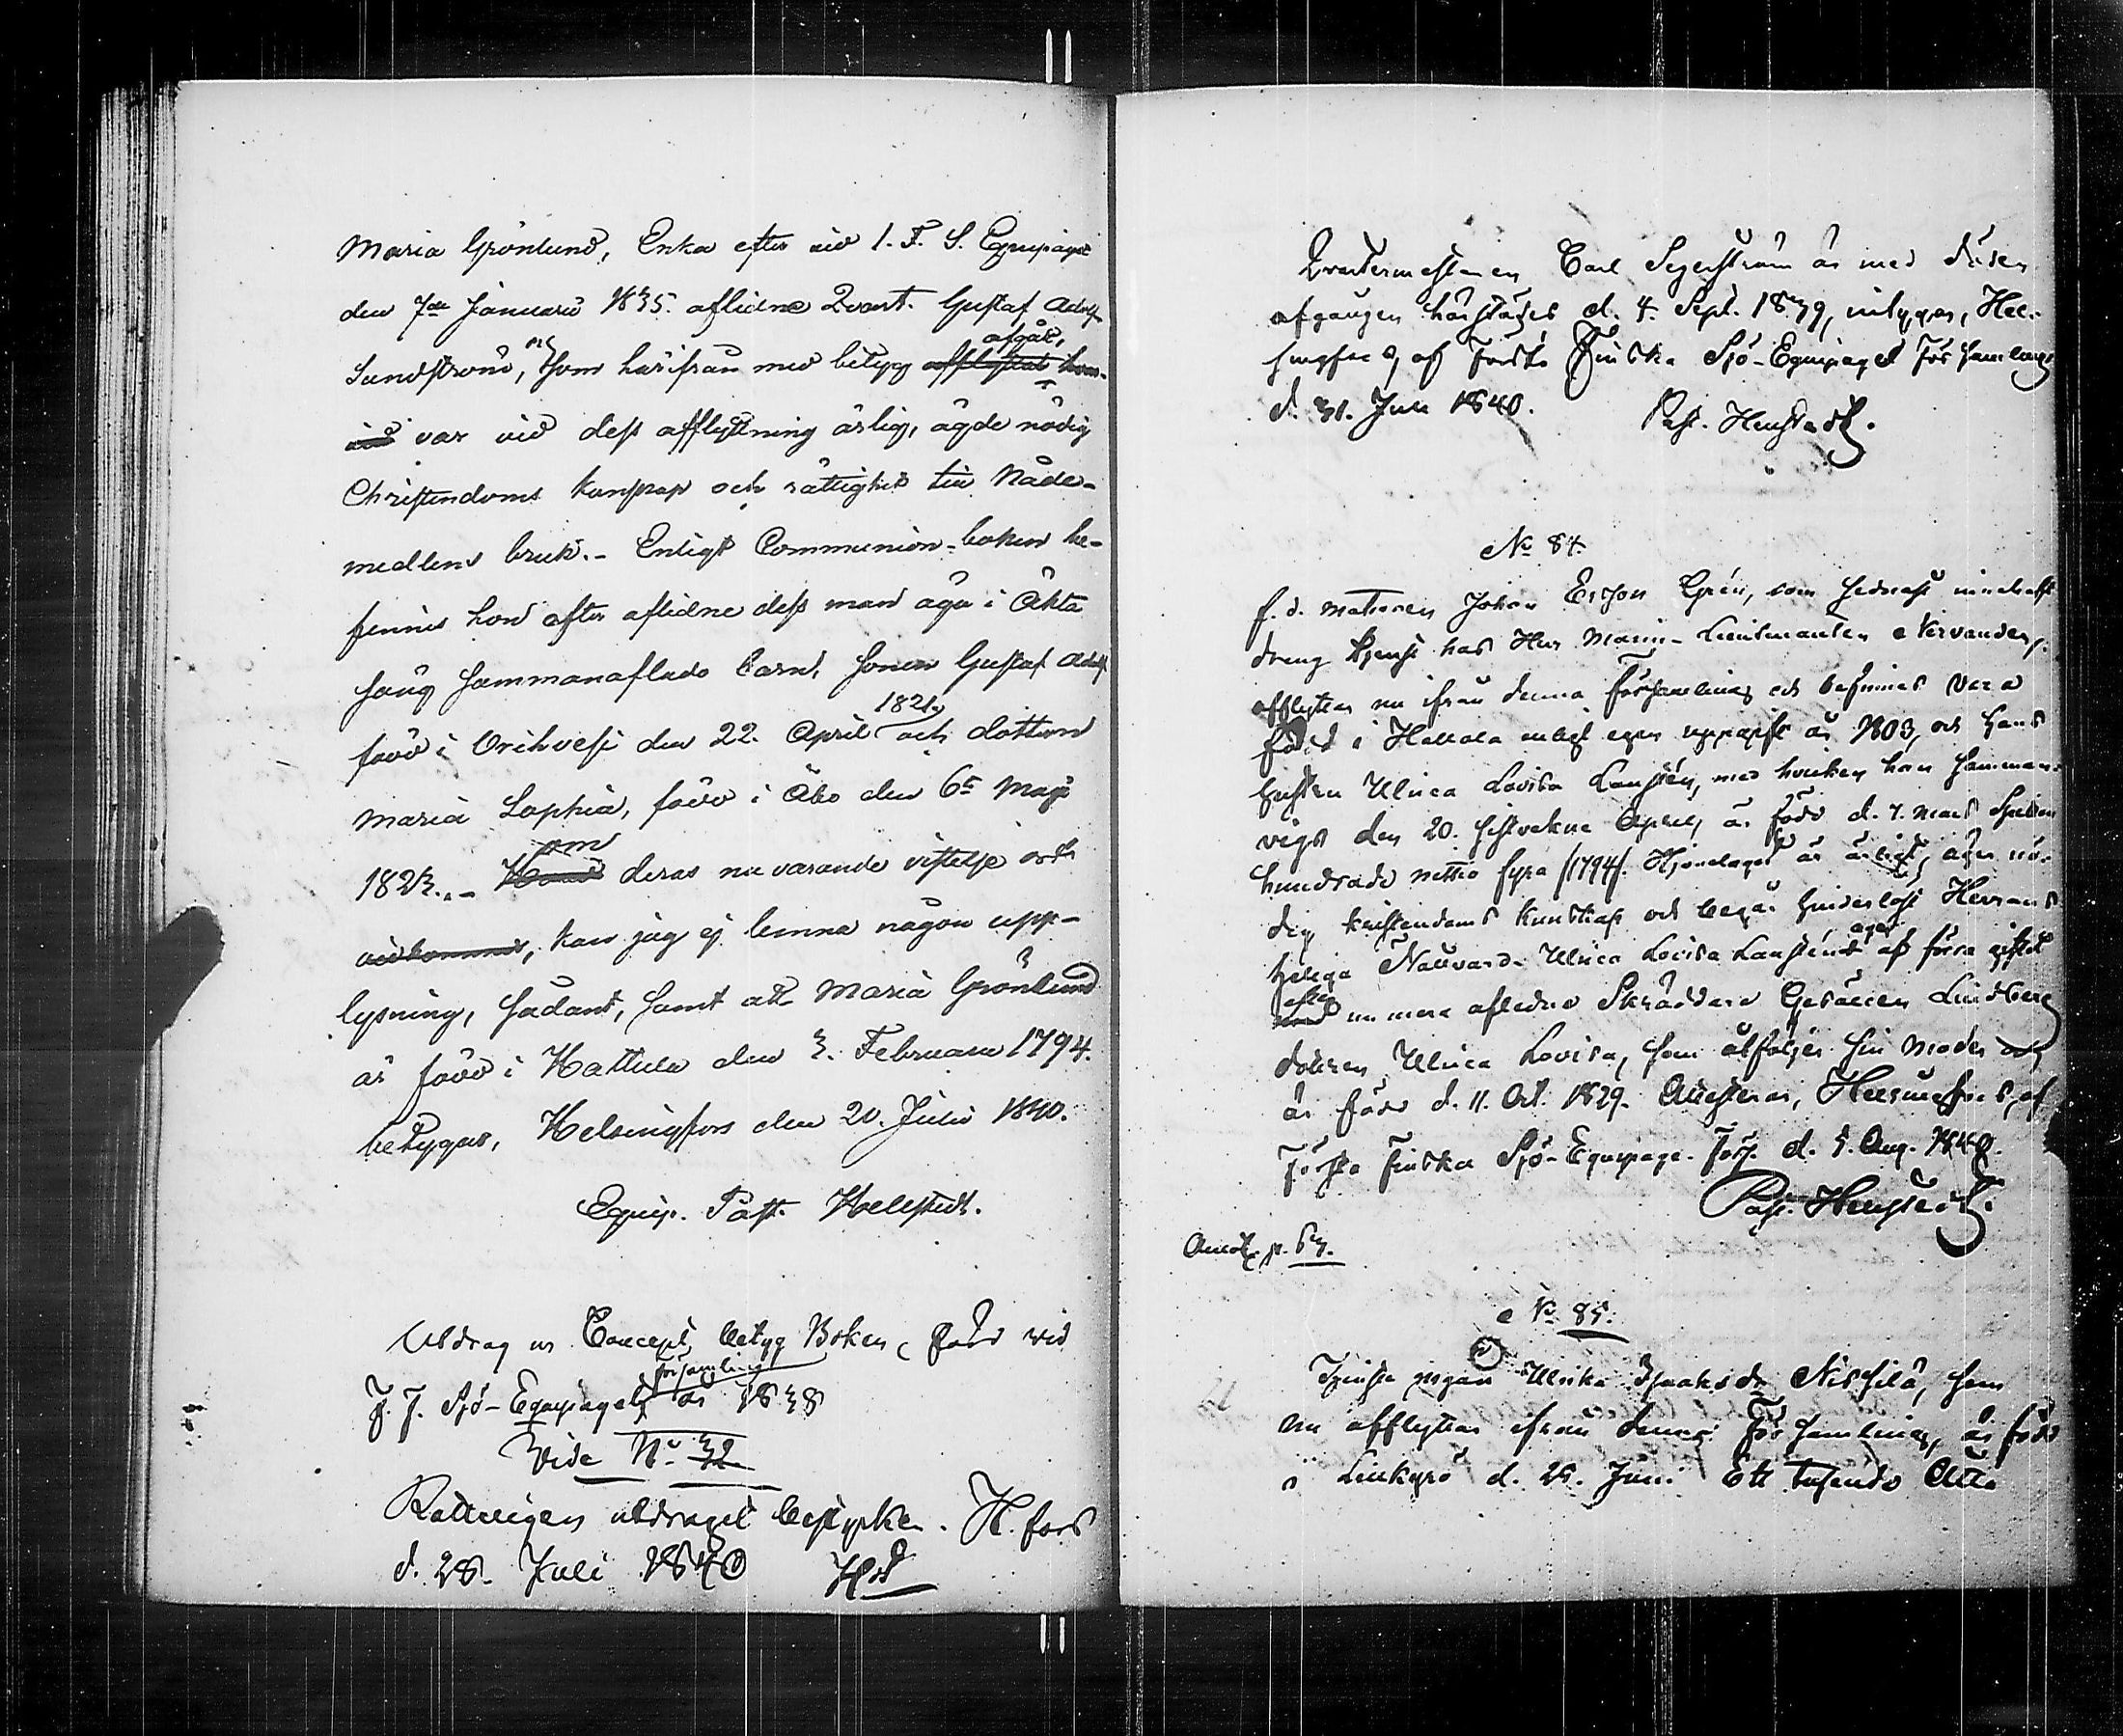 Maria Grönlund, Enka efter vid 1. F. S. Equipaget
den 7de Januarii 1835. aflidne Qvart. Gustaf Adolf
Sundström, som härifrån med betyg afflyttat afgåt,
var vid dess afflyttning ärlig, ägde nödig
Christendoms kunskap och rättighet till Nåde-
medlens bruk. - Enligt Communion-boken be-
finnes hon efter aflidne dess man äga i Äkta
säng sammanaflade barn, Sonen Gustaf Adolf
född i Orihvesi den 22. April 1821. och dottren
Maria Sophia, född i Åbo den 6te Maji
1823. - om deras nuvarande vistelse ort
vidkommer, kan jag ej lemna någon upp-
lysning, sådant, samt att Maria Grönlund
är född i Hattula den 3. Februarii 1794.
betygar, Helsingfors den 20. Julii 1840.
Equip. Past. Hellstedt.
Utdrag ur Concept, betyg Boken, förd vid
F. F. Sjö-Equipagets församling år 1838
Vide No 32
Rätteligen utdraget bestyrker. H.fors
d. 28. Juli 1840 Hdt
Qvartermästaren Carl Segerström är med döden
afgången härstädes d. 4. Sept. 1839, intygar, Hel-
singfors, af Första Finska Sjö-Equipaget Församling
d. 31. Juli 1840. Past. Hellstedt.
No 84.
f. d. Matrosen Johan Ersson Grén, som sednast innehaft
dreng tjenst hos Herr Marin-Lieutnanten Nervander,
afflyttar nu ifrån denna Församling och befinnes vara
född i Hollola enligt egen uppgift år 1803, och hans
hustru Ulrica Lovisa Lansten, med hvilken han samman-
vigt den 20. sistvekne April, är född d. 7. Mars Sjutton
hundrade nittio fyra /1794/. Hjonelaget är ärligt, äger nö-
dig kristendoms kunskap och begår hinderlöst Herrans
heliga Nattvard. Ulrica Lovisa Lansten äger af förra giftet
efter nu mera aflidne Skräddare Gesällen Lindberg
dottren Ulrica Lovisa, som åtföljer sin moder och
är född d. 11. Oct. 1829. Attesterar, Helsingfors, af
Första Finska Sjö-Equipage. Förs. d. 5. Aug. 1840.
Past. Hellstedt.
Anmt. p. 63.
No 85.
Tjenste pigan Ulrika Isaksdr Nissilä, som
nu afflyttar ifrån denna Församling, är född
i Lillkyro d. 25. Juni Ett tusende Åtta